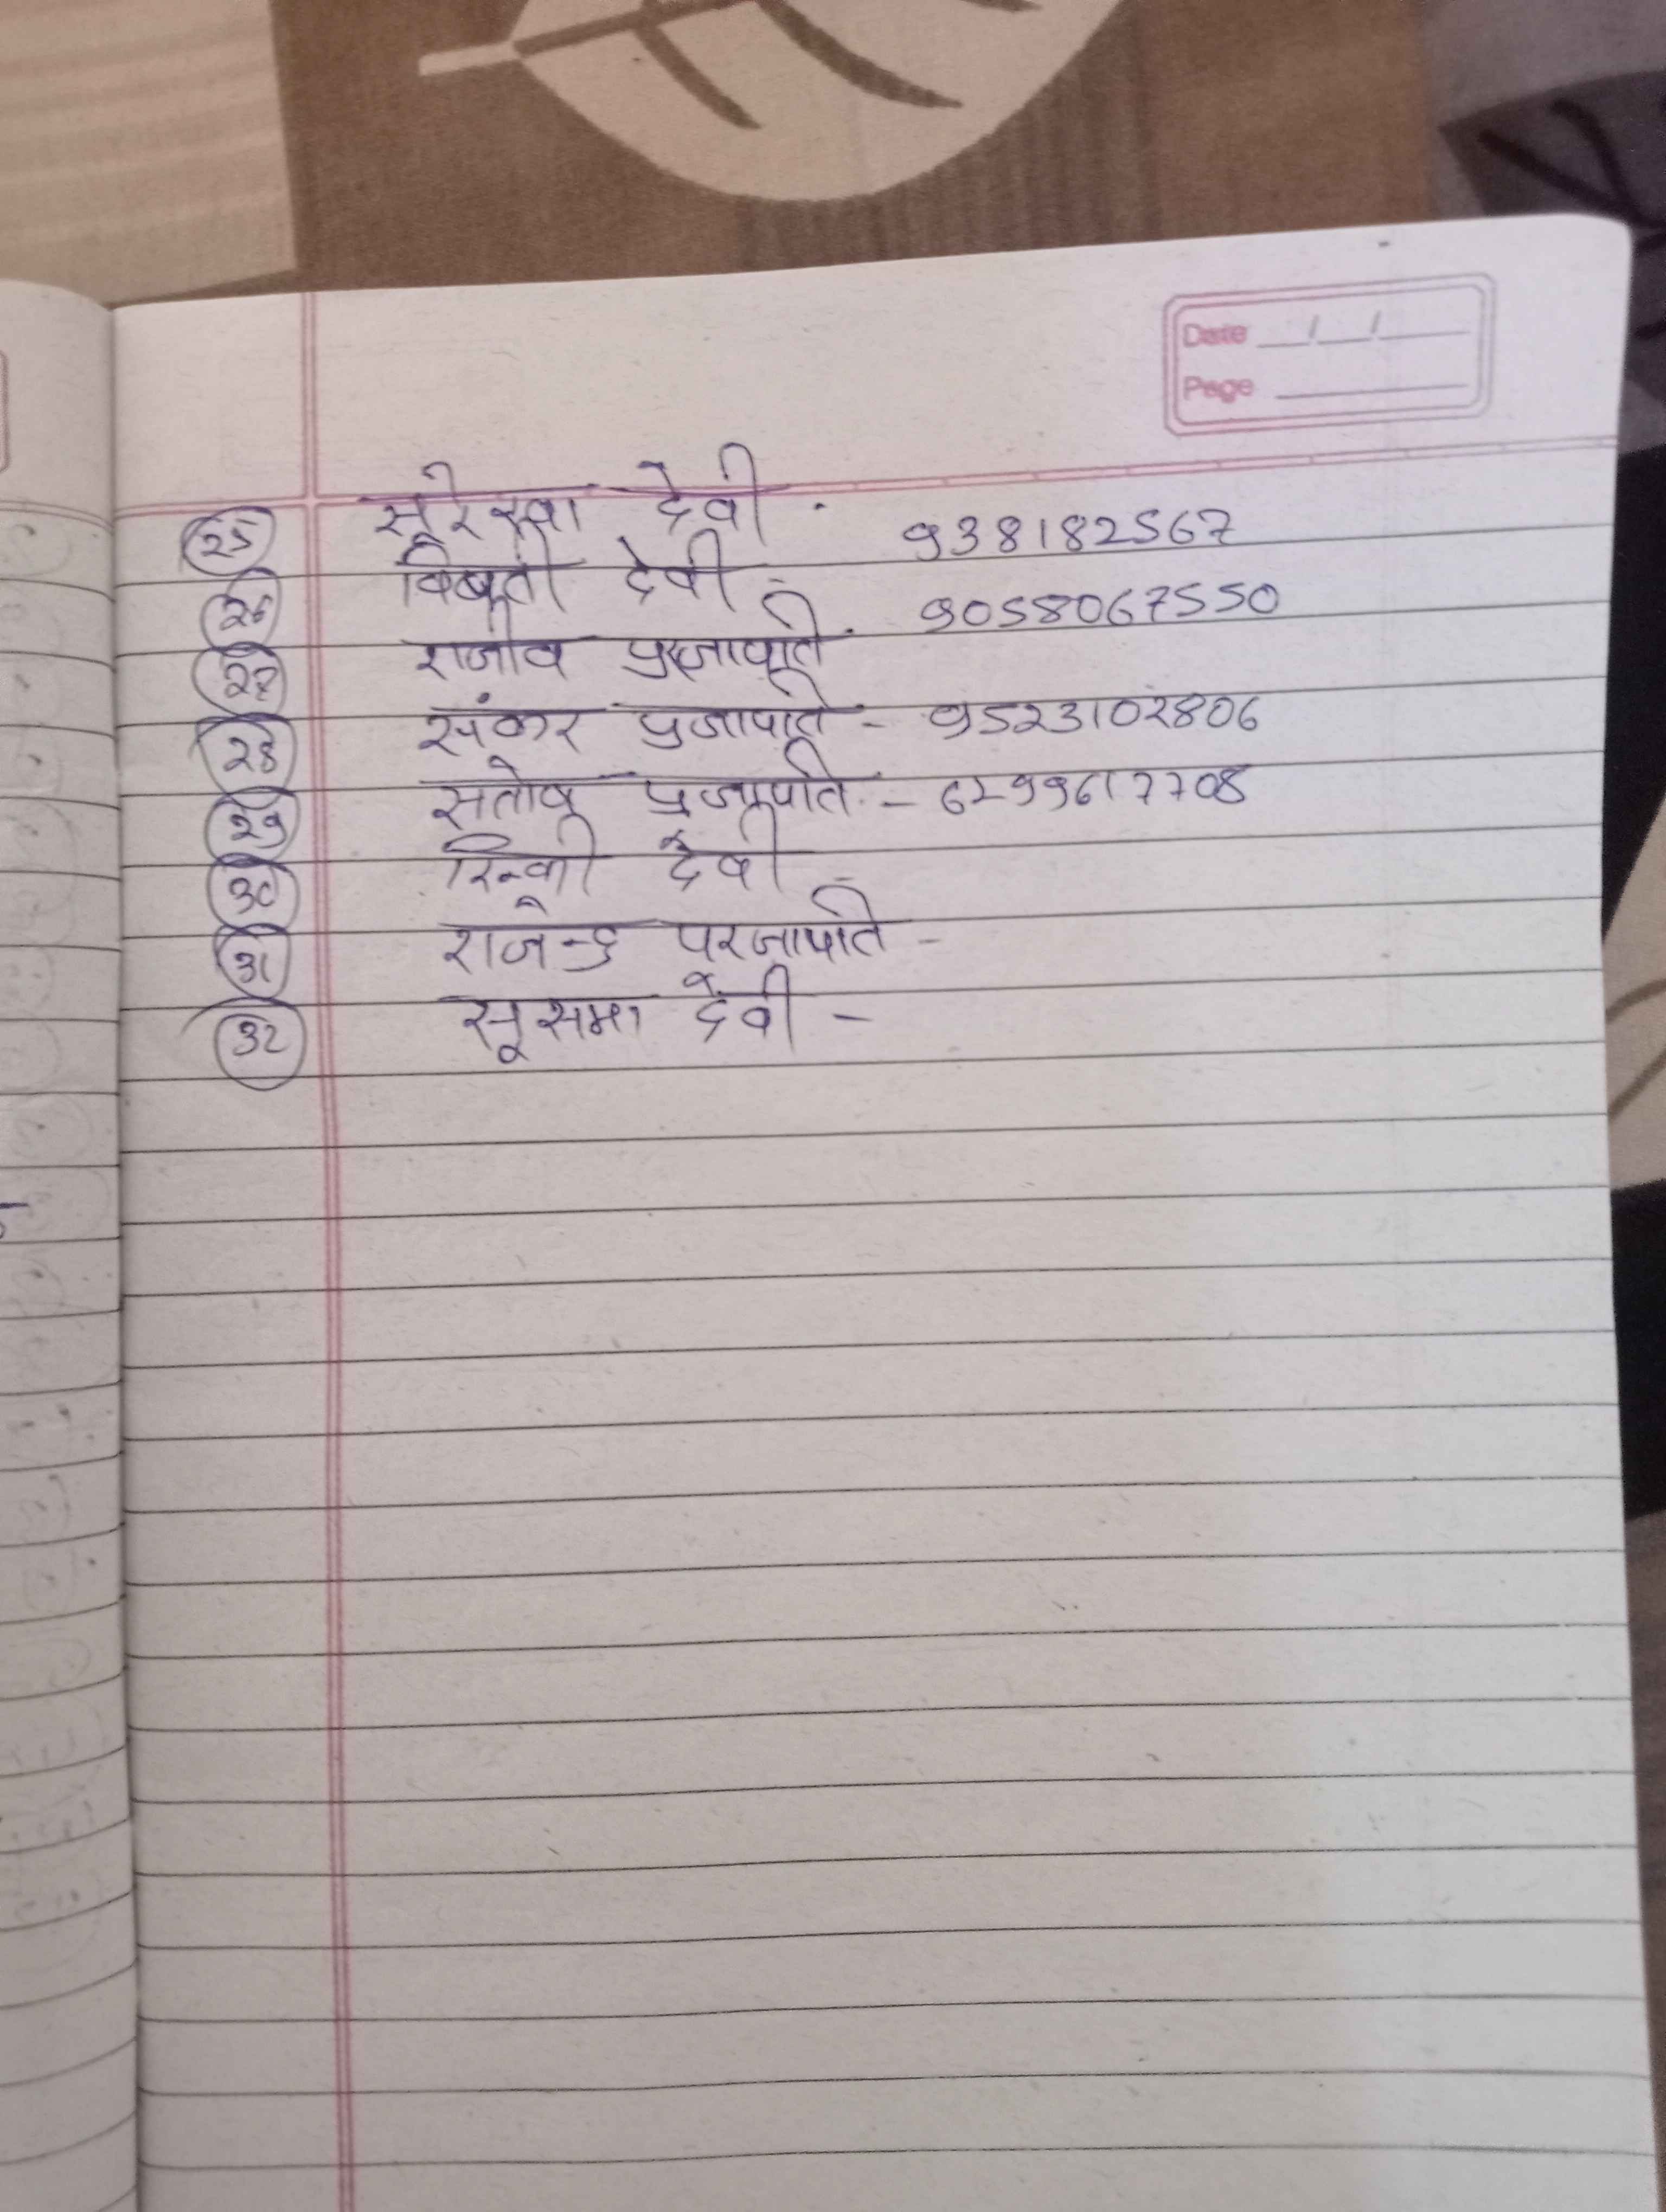 Date __/__/____
Page ________
25 सूरेखा देवी .
26 विभूती देवी - 938182567
27 राजीव प्रजापति . 9058067550
28 संकर प्रजापति - 9523102806
29 सतोष प्रजापति - 6299617708
30 रिन्की देवी -
31 राजेन्द्र परजापति -
32 सूसमा देवी -